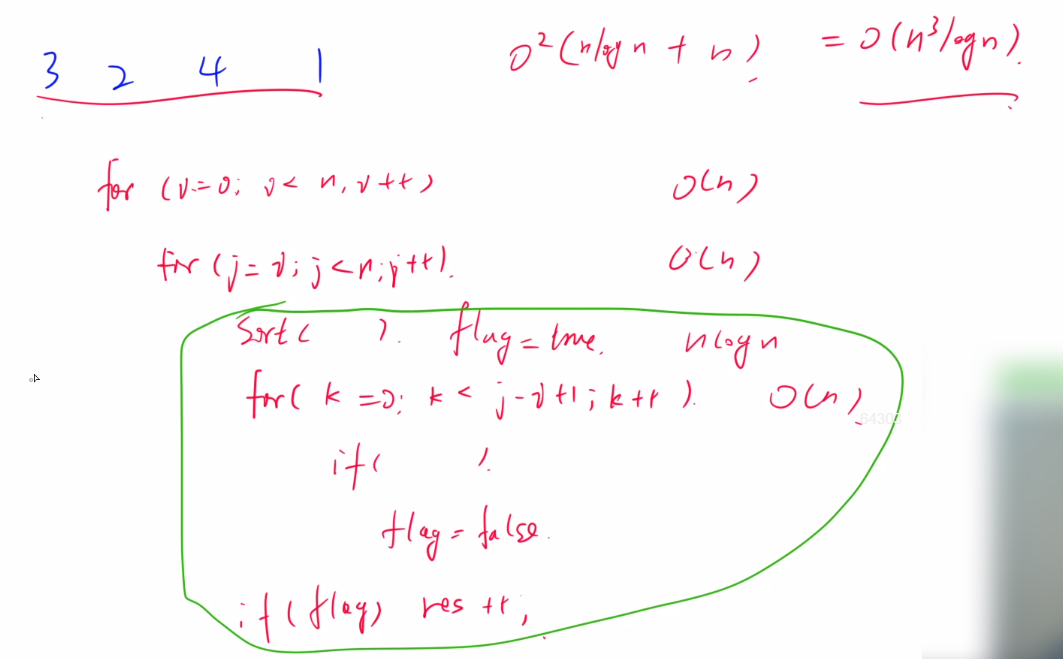 3 2 4 1
O²(nlogn + n) = O(n³logn).
for (i=0; i< n, i++) O(n)
for (j=i; j<n; j++). O(n)
Sort( ). flag=true. nlogn
for( k=0; k< j-i+1; k++). O(n)
if( ).
flag=false.
if(flag) res ++;